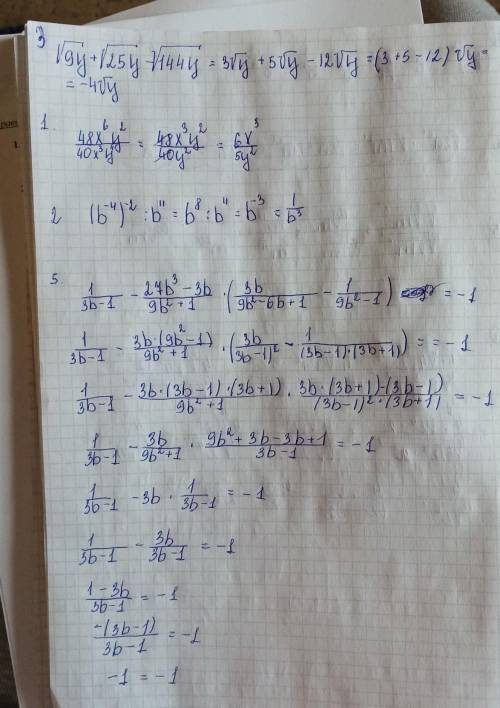 3
√9y + √25y - √144y = 3√y + 5√y - 12√y = (3 + 5 - 12)√y =
= -4√y
1. 48x⁶y²/40x³y⁴ = 48x³y²/40y² = 6x³/5y²
2 (b⁻⁴)⁻² : b¹¹ = b⁸ : b¹¹ = b⁻³ = 1/b³
5.
1/(3b-1) - (27b³-3b)/(9b²+1) · (3b/(9b²-6b+1) - 1/(9b²-1)) = -1
1/(3b-1) - 3b·(9b²-1)/(9b²+1) · (3b/(3b-1)² - 1/((3b-1)·(3b+1))) = = -1
1/(3b-1) - 3b·(3b-1)·(3b+1)/(9b²+1) · (3b·(3b+1)-(3b-1))/((3b-1)²·(3b+1)) = -1
1/(3b-1) - 3b/(9b²+1) · (9b²+3b-3b+1)/(3b-1) = -1
1/(3b-1) - 3b · 1/(3b-1) = -1
1/(3b-1) - 3b/(3b-1) = -1
(1-3b)/(3b-1) = -1
-(3b-1)/(3b-1) = -1
-1 = -1